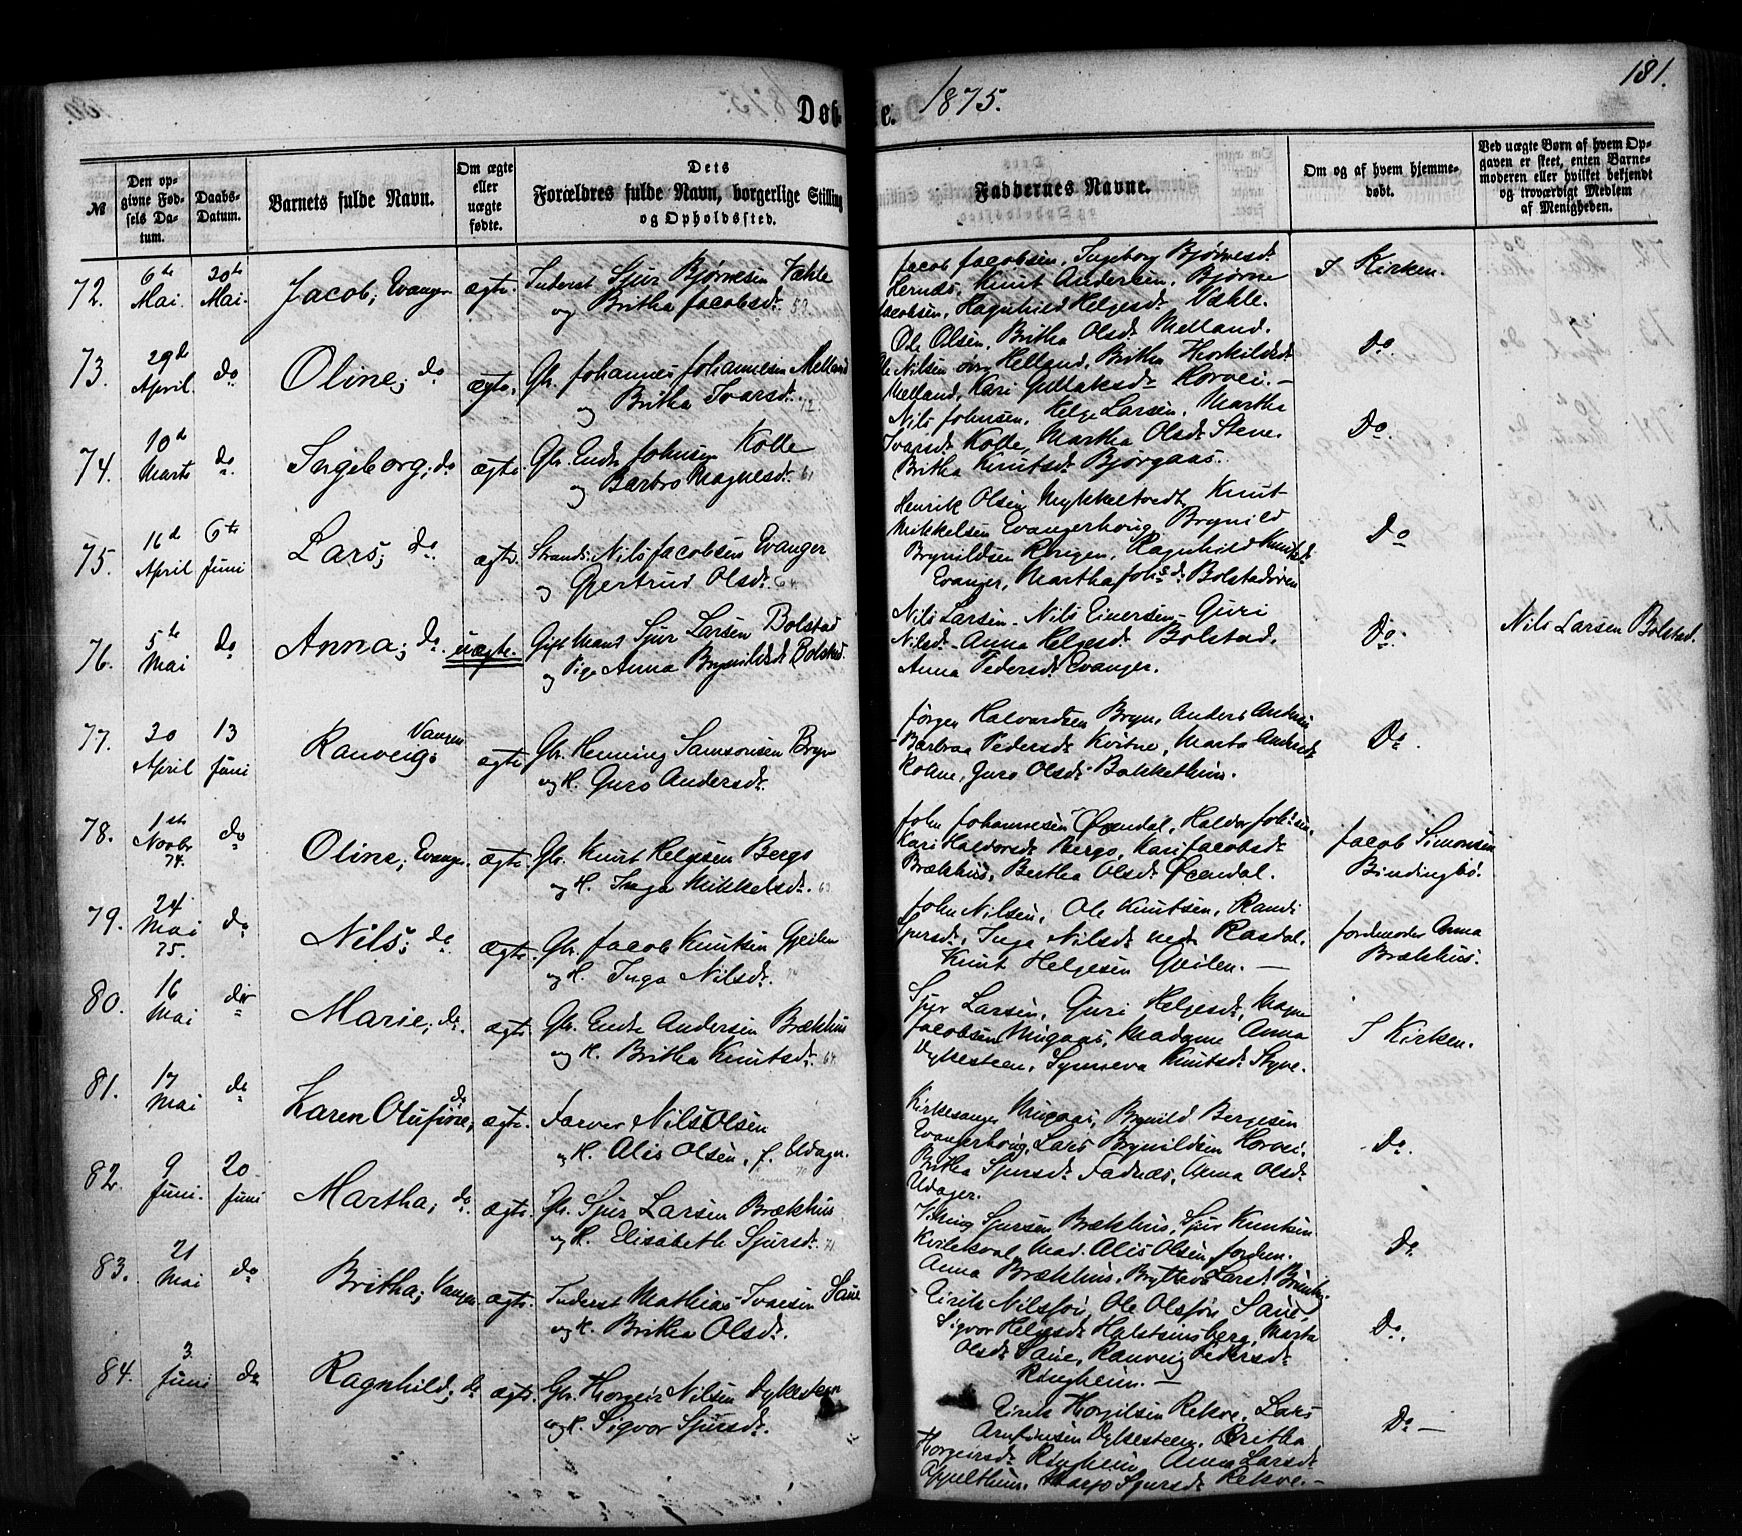 181.
Døbte. 1875.
№
Den opgivne Fødsels Datum.
Daabs-Datum.
Barnets fulde Navn.
Om ægte eller uægte fødte.
Dets Forældres fulde Navn, borgerlige Stilling og Opholdssted.
Faddernes Navne.
Om og af hvem hjemmedøbt.
Ved uægte Børn af hvem Opgaven er skeet, enten Barnemoderen eller hvilket bekjendt og troværdigt Medlem af Menigheden.
72. 6te Mai. 30te Mai. Jacob; Evanger ægte.
Inderst Sjur Bjørnesen Vække
og Britha Jacobsdr. 52.
Jacob Jacobsen, Ingeborg Bjørnesdr
Hernæs, Knut Andersen, Bjørne
Jacobsen, Ragnhild Helgesdr Vække.
I Kirken.
73. 29de April do Oline; do ægte.
Gbr. Johannes Johannesen Melland
og Britha Ivarsdr. 72.
Ole Olsen, Britha Olsdr Melland.
Ole Nilsen øvre Helland, Britha Thorkildsdr
Melland, Kari Gullaksdr Horvei.—
Do.
74. 10de Marts do Ingeborg; do ægte.
Gbr. Endre Johnsen Kolle
og Barbro Magnesdr. 61
Nils Johnsen, Helge Larsen, Martha
Ivarsdr Kolle, Martha Olsdr Stene.
Britha Knutsdr Bjørgaas.
Do.
75. 16de April 6te Juni Lars; do ægte.
Strands. Nils Jacobsen Evanger
og Gjertrud Olsdr. 64
Henrik Olsen Mykkeltvedt, Knut
Mikkelsen Evangerhoug, Brynild
Brynildsen Ringen, Ragnhild Knutsdr
Evanger, Martha Johsdr Bolstadøren
Do
76. 5te Mai do Anna; do. uægte.
Gift Mand Sjur Larsen Bolstad
og Pige Anna Brynildsdr Bolstad.
Nils Larsen, Nils Einersen, Guri
Nilsdr, Anna Helgesdr Bolstad,
Anna Pedersdr Evanger.
Do.
Nils Larsen Bolstad.
77. 30 April 13 Juni Ranveig; Vangen ægte
Gbr. Henning Samsonsen Bryn
og H. Guro Andersdr.
Jørgen Halvardsen Bryn, Anders Andersen
Barbraa Pedersdr Kvitne, Marta Andersdr
Rokne, Guro Olsdr Bakkethun.
Do.
78. 1ste Novbr 74. do Oline; Evanger. ægte.
Gbr. Knut Helgesen Berge
og H. Inga Mikkelsdr. 63
John Johannesen Øxendal, Haldor Johsen,
Kari Haldorsdr Berge, Kari Jacobsdr
Brækhus, Bertha Olsdr Øxendal.
Jacob Simonsen
Bindingbø.
79. 24 Mai 75. do Nils; do ægte.
Gbr. Jacob Knutsen Gjeilen
og H. Inga Nilsdr.
John Nilsen, Ole Knutsen, Randi
Sjursdr, Inga Nilsdr nedr Rasdal.
Knut Helgesen Gjeilen.—
Jordemoder Anna
Brækhus.
80. 16 Mai do Marie; do. ægte.
Gbr. Endre Andersen Brækhus
og H. Britha Knutsdr. 64
Sjur Larsen, Guri Helgesdr, Magne
Jacobsen Mugaas, Madame Anna
Dykesteen, Synneva Knutsdr Styve.
I Kirken.
81. 17 Mai do Karen Olufine, do ægte.
Farver Nils Olsen
og H. Alis Olsen, f. Udager.
Kirkesanger Mugaas, Brynild Bergesen
Evangerhoug, Lars Brynildsen Horvei,
Britha Sjursdr Fadnæs, Anna Olsdr
Udager.
Do.
82. 9 Juni. 20 Juni Martha; do. ægte.
Gbr. Sjur Larsen Brækhus
og H. Elisabeth Sjursdr. 71
Viking Sjursen Brækhus, Sjur Knutsen
Kvilekval, Mad. Alis Olsen, Jordem.
Anna Brækhus, Bryteva Larsdr
Do
83. 21 Mai do Britha; Vangen ægte.
Inderst Mathias Ivarsen Saue
og H. Britha Olsdr.
Eirik Nilssøn, Ole Olssøn Saue,
Sigvor Helgesdr Halstensberg, Marta
Olsdr Saue, Ranveig Pedersdr
Ringheim.—
Do.
84. 3. Juni do Ragnhild; do ægte.
Gbr. Thorgeir Nilsen Dykesteen
og H. Sigvor Sjursdr.
Eirik Thorgilsen Rekve, Lars
Arnfinsen Dykesteen, Britha
Thorgeirsdr Ringheim, Anna Larsdr
Appelthun, Sjursdr Rekve.—
Do—